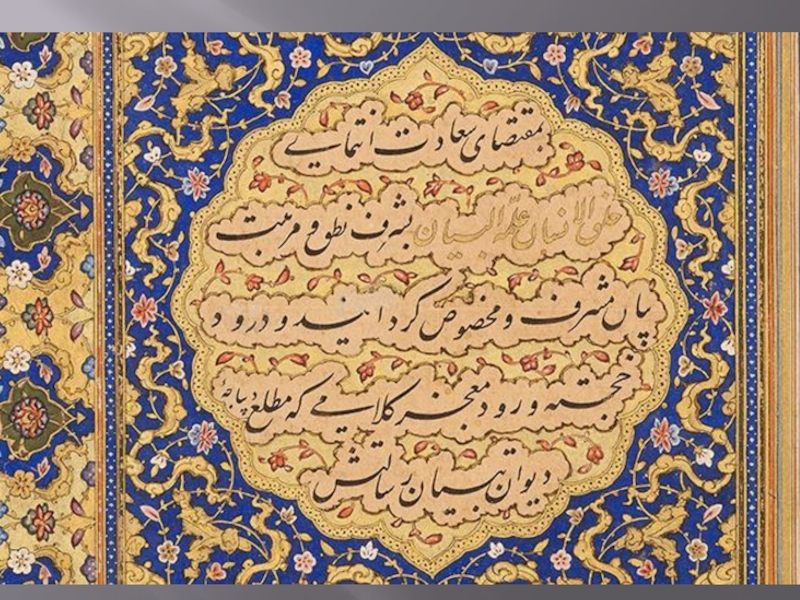 بمقتضای سعادت انتمایی
خلق الانسان علمه البیان بشرف نطق و مرتبت
بیان مشرف و مخصوص گردانید و درود
خجسته ورود معجز کلامی که مطلع دیباجه
دیوان تبیان رسالتش